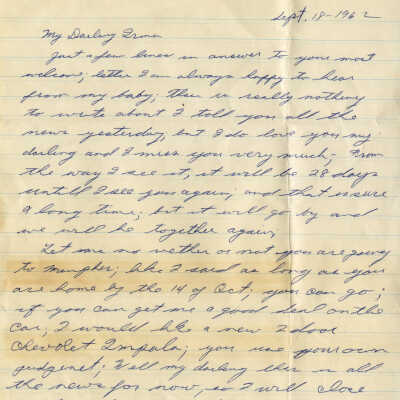 Sept. 18-1962
My Darling Irma
Just a few lines in answer to your most
welcome, letter I am always happy to hear
from my baby; there is really nothing
to write about I told you all the
news yesterday, but I do love you my
darling and I miss you very much; From
the way I see it, it will be 28 days
untill I see you again; and that is sure
a long time; but it will go by and
we will be together again,
Let me no wether or not you are going
to memphis; like I said as long as you
are home by the 14 of Oct, you can go;
if you can get me a good deal on the
car, I would like a new 2 door
Chevrolet Impala; you use your own
judgenet; Well my darling this is all
the news for now, so I will close